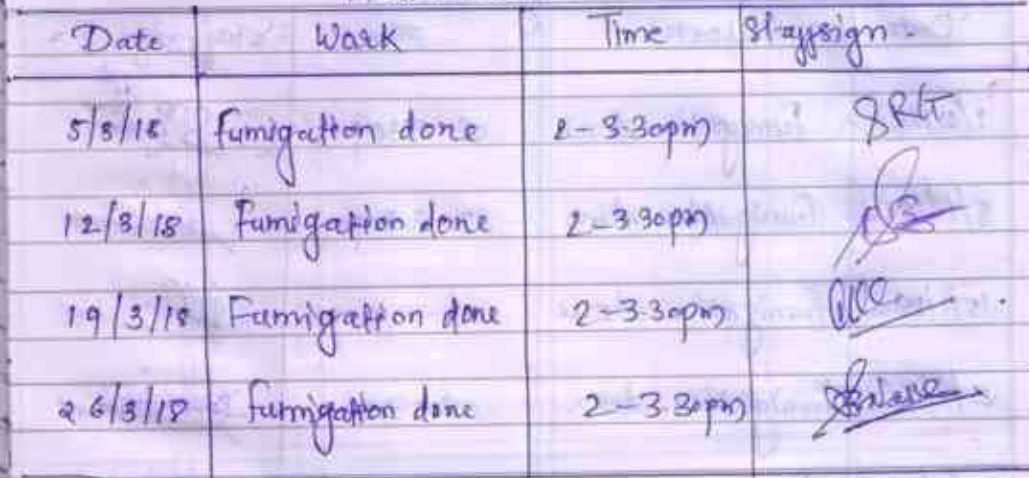 Date Work Time Staffsign.
5/3/18 fumigation done 2-3.30pm SRT
12/3/18 Fumigation done 2-3.30pm
19/3/18 Fumigation done 2-3.30pm
26/3/18 fumigation done 2-3.30pm